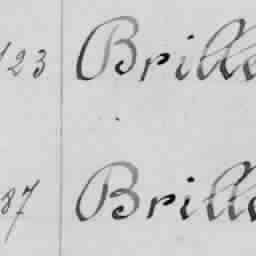 123 Brille
87 Brille